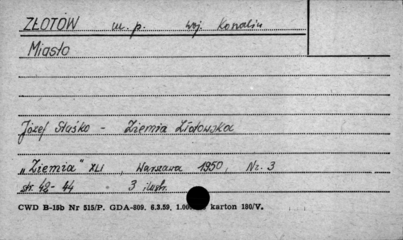 ZŁOTÓW m. p. woj. Koszalin
Miasto
Józef Staśko - Ziemia Złotowska
"Ziemia" XLI, Warszawa 1950, Nr. 3
str. 42-44 - 3 ilustr.
CWD B-15b Nr 515/P. GDA-809. 6.3.59, 1.00 karton 180/V.